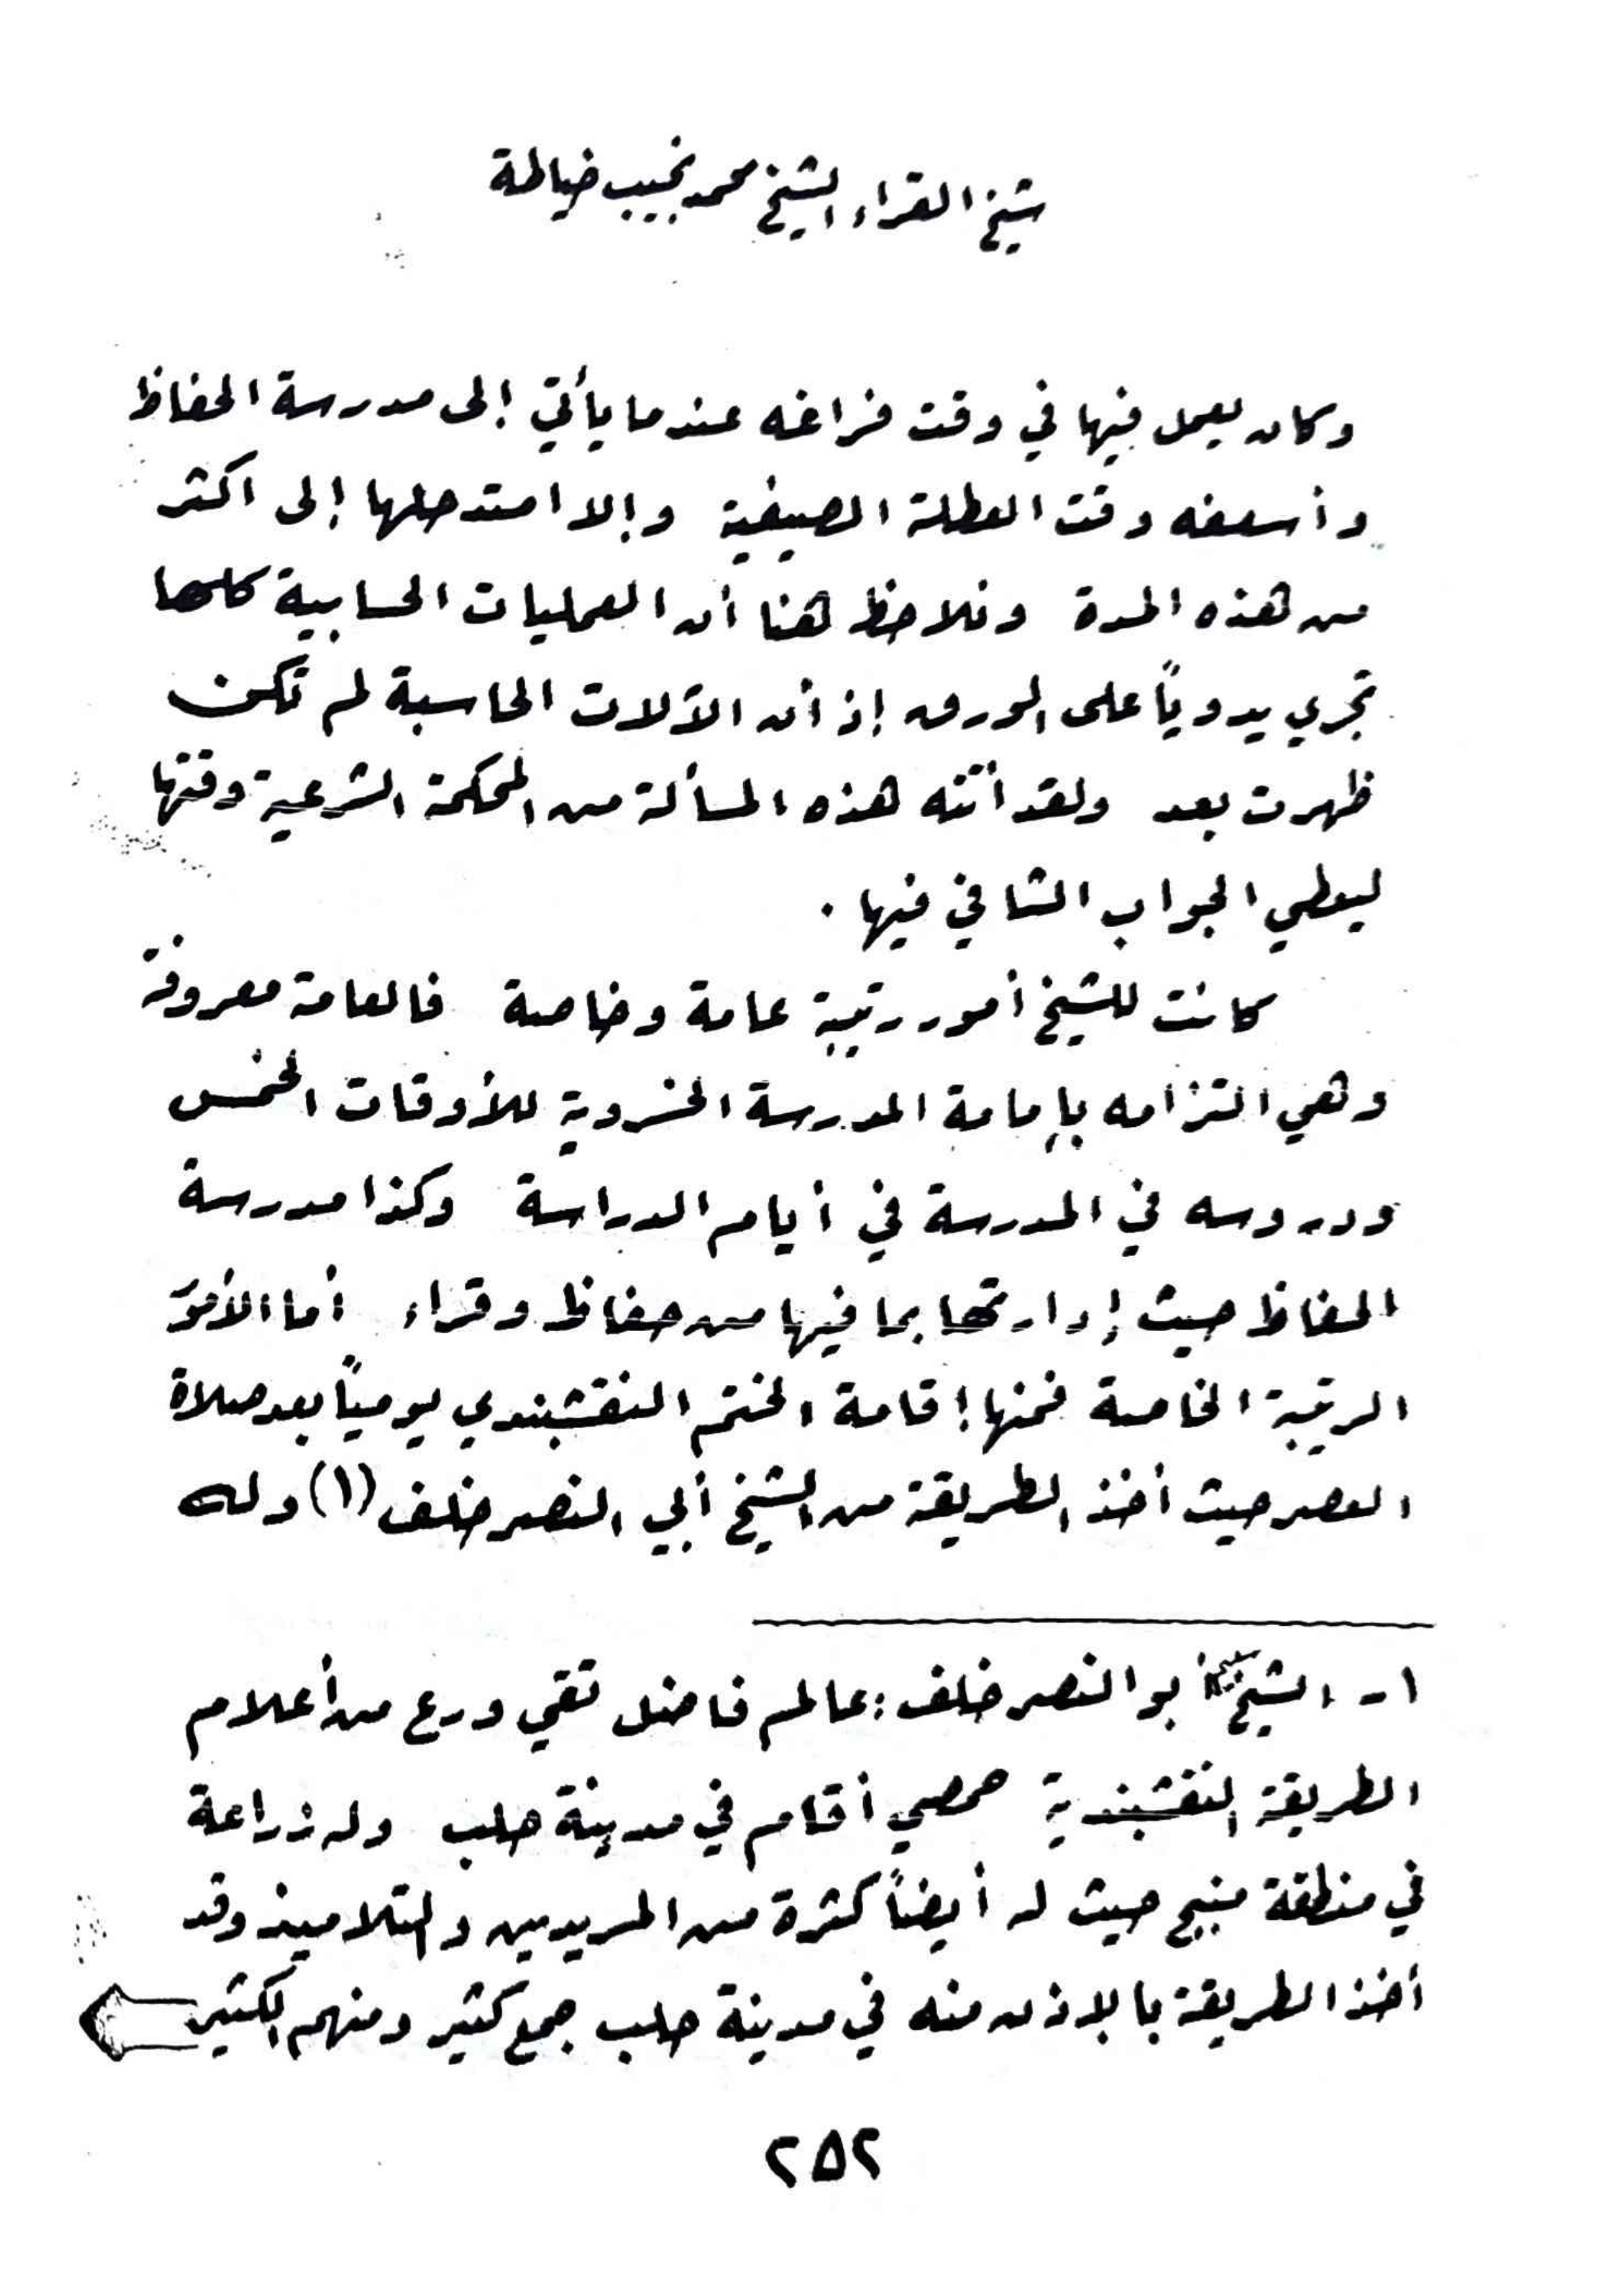 شيخ القراء الشيخ محمد نجيب خياطة
وكان يعمل فيها في وقت فراغه عندما يأتي إلى مدرسة الحفاظ
وأسعفه وقت العطلة الصيفية وإلا امتد حلها إلى اكثر
من هذه المدة ونلاحظ هنا أن العمليات الحسابية كلها
تجري يدوياً على الورق إذ أن الآلات الحاسبة لم تكن
ظهرت بعد ولقد أتته هذه المسألة من المحكمة الشرعية وقتها
ليعطي الجواب الشافي فيها .
كانت للشيخ أمور رتيبة عامة وخاصة فالعامة معروفة
وهي التزامه بإمامة المدرسة الخسروية للأوقات الخمس
ودروسه في المدرسة في أيام الدراسة وكذا مدرسة
الحفاظ حيث إدارتها بما فيها من حفاظ وقراء أما الأمور
الرتيبة الخاصة فمنها إقامة الختم النقشبندي يومياً بعد صلاة
العصر حيث أخذ الطريقة من الشيخ أبي النصر خلف (١) وله
١ - الشيخ أبو النصر خلف : عالم فاضل تقي ورع من أعلام
الطريقة النقشبندية حمصي أقام في مدينة حلب وله زراعة
في منطقة منبج حيث له أيضاً كثرة من المريدين والتلاميذ وقد
أخذ الطريقة بالاذن منه في مدينة حلب جمع كثير ومنهم الكثير
٢٥٢